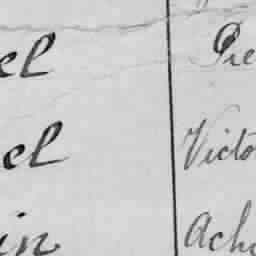 el Pie
el Victo
in Ach